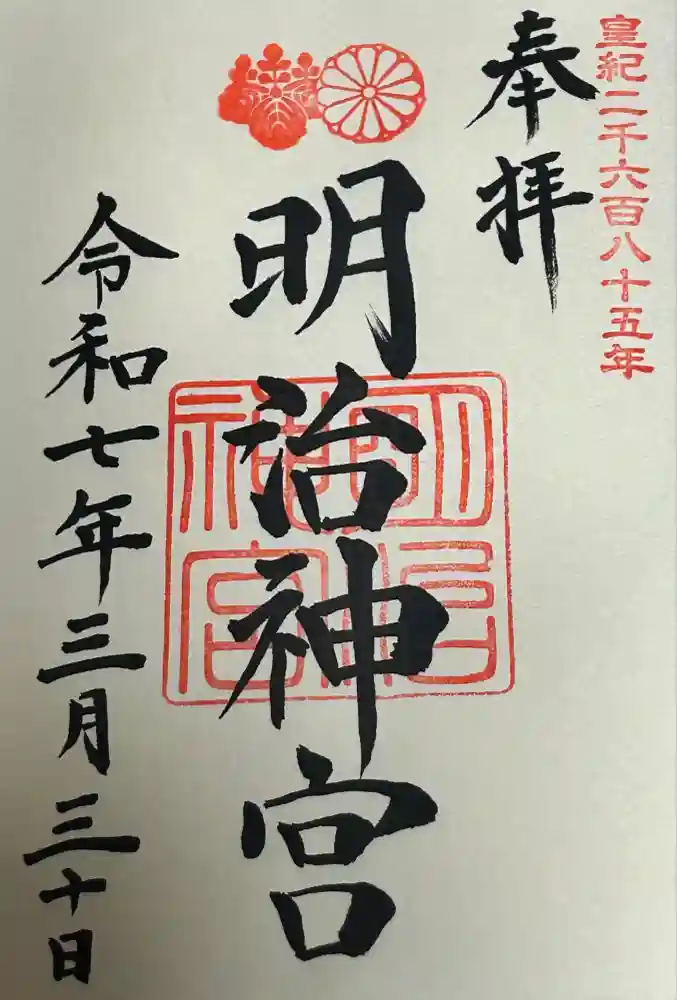 皇紀二千六百八十五年
奉拝
明治神宮
明治
神宮
令和七年三月三十日